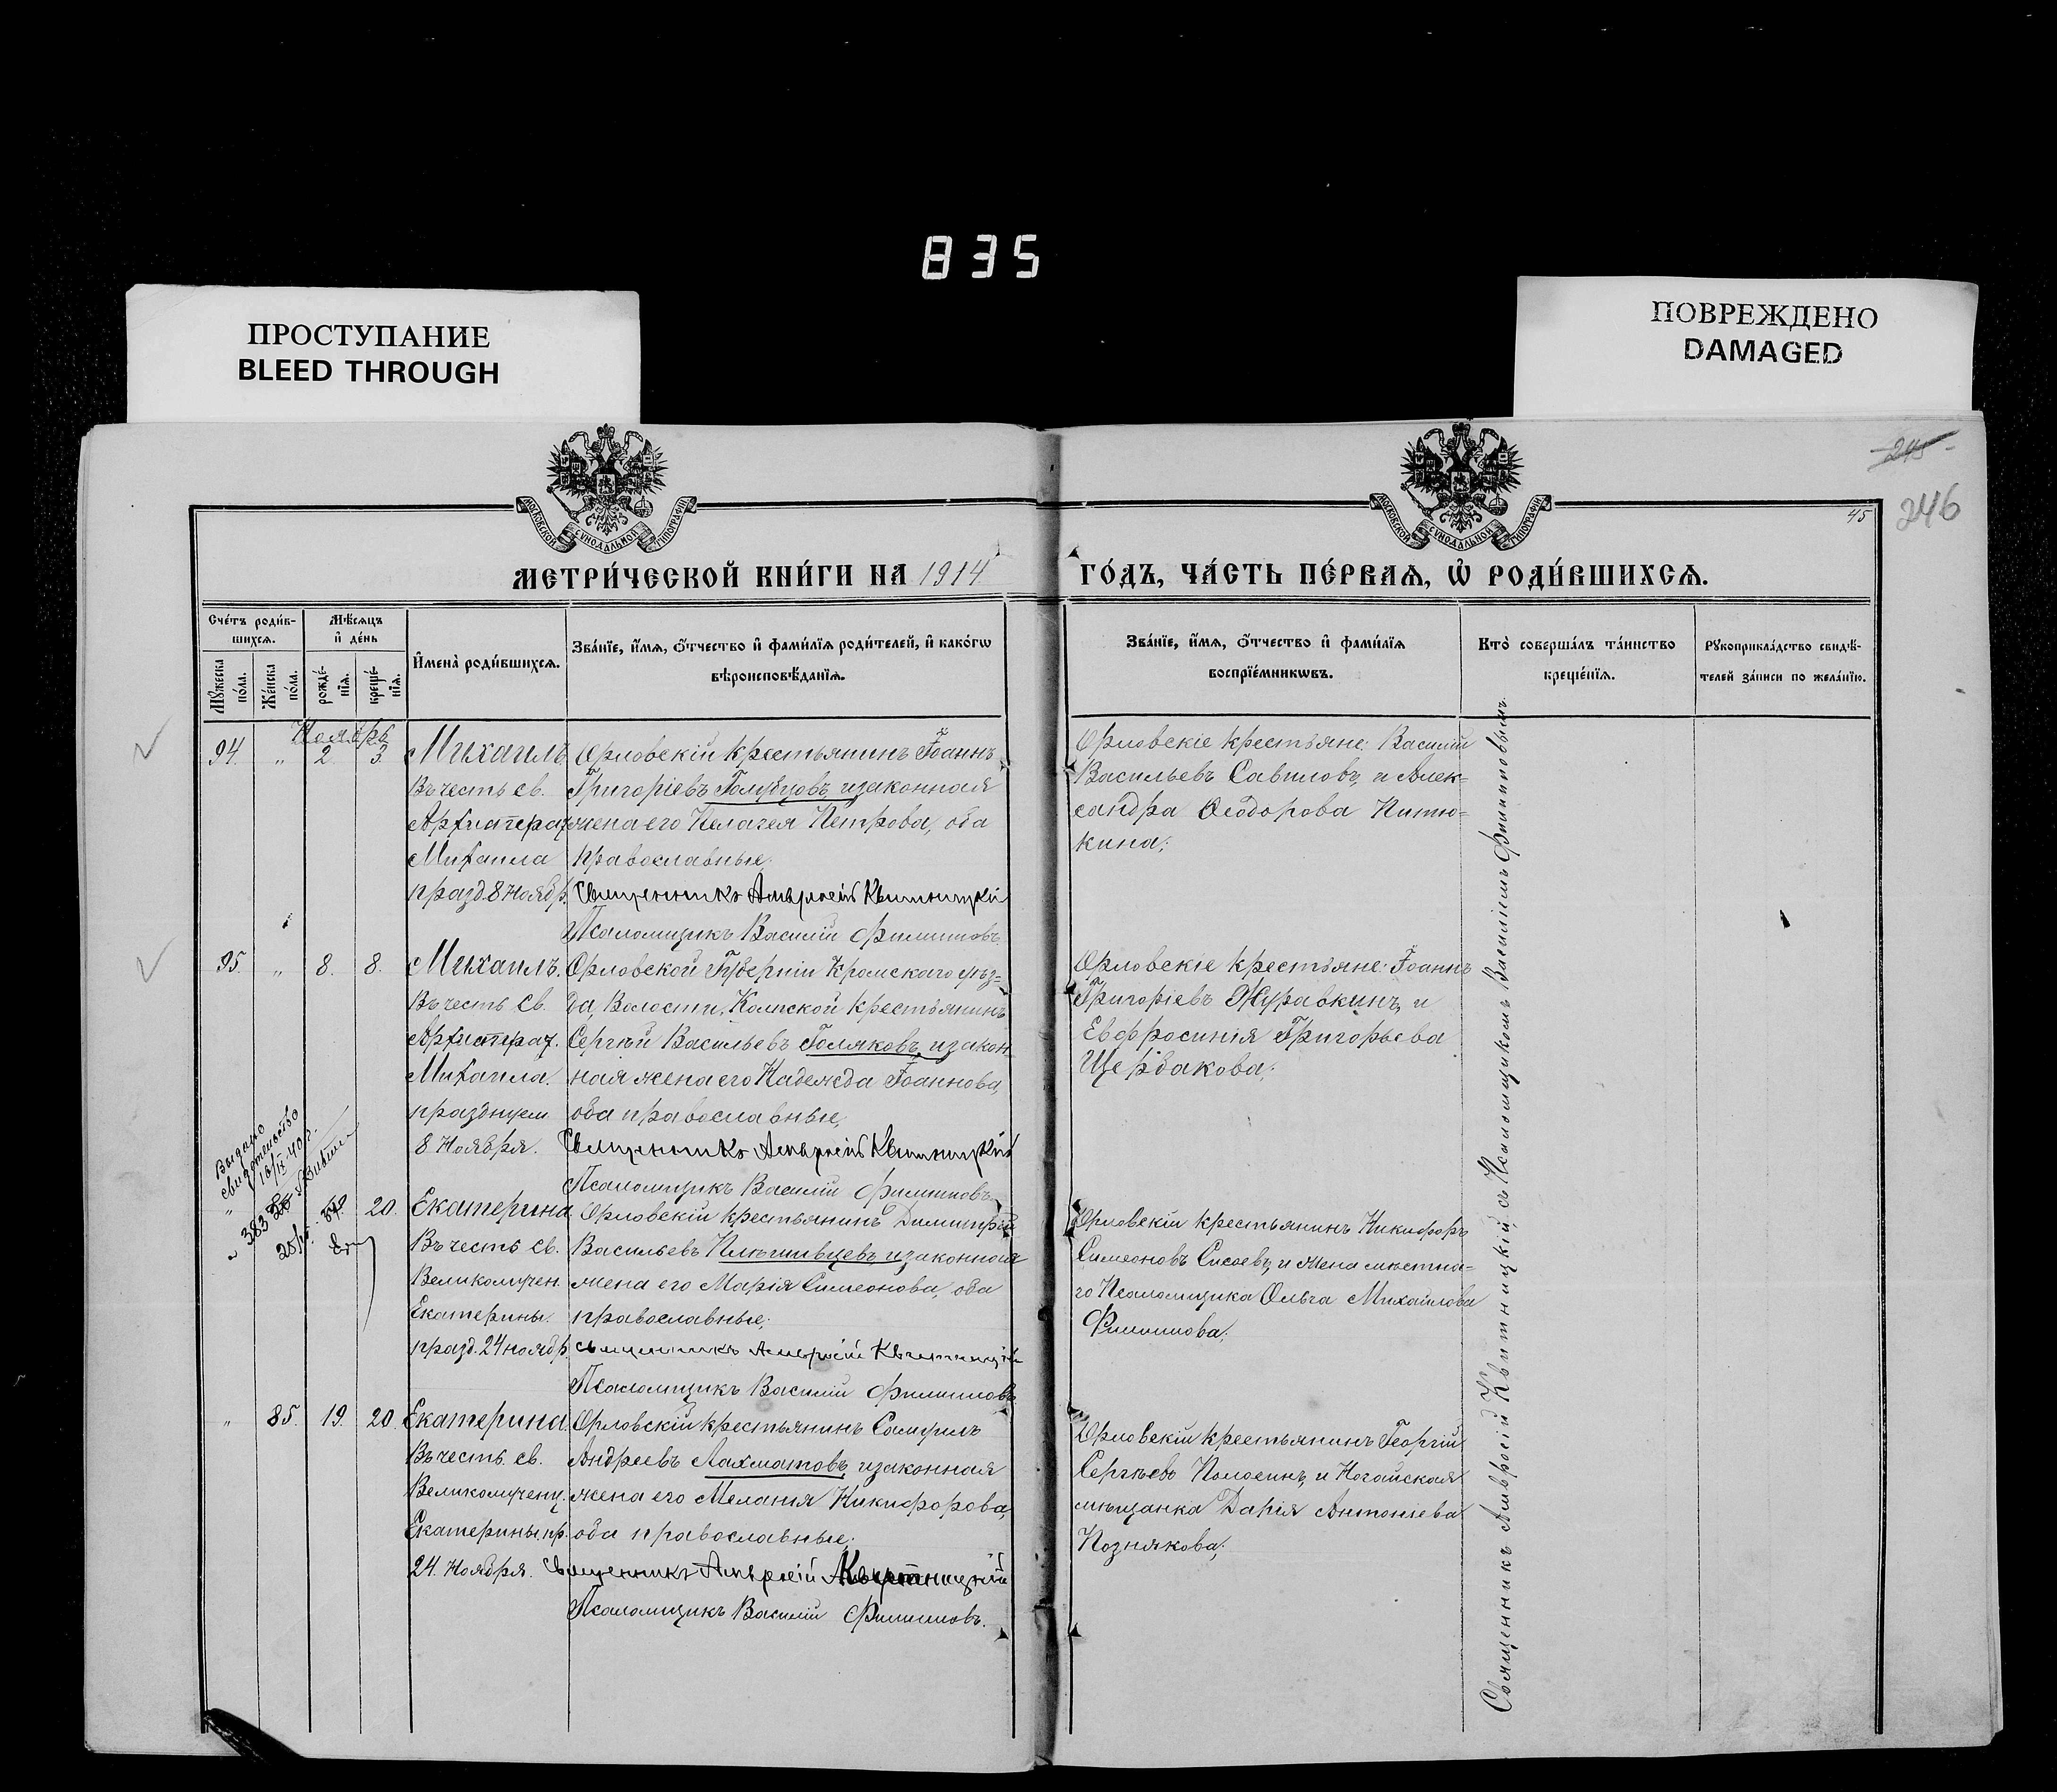 835
ПРОСТУПАНИЕ
BLEED THROUGH
ПОВРЕЖДЕНО
DAMAGED
МОСКОВСКОЙ СѴНОДАЛЬНОЙ ТИПОГРАФІИ
МОСКОВСКОЙ СѴНОДАЛЬНОЙ ТИПОГРАФІИ
245
246
45
МЕТРИ́ЧЕСКОЙ КНИ́ГИ НА 1914
ГО́ДЪ, ЧА́СТЬ ПЕ́РВАѦ, Ѡ РОДИ́ВШИХСѦ.
Сче́тъ роди́в-
шихсѧ.
Мꙋ́жеска по́ла.
Же́нска по́ла.
Мѣ́сѧцъ
и де́нь
рожде́-
нїѧ.
креще́-
нїѧ.
Имена̀ роди́вшихсѧ.
Зва́нїе, и́мѧ, ѻ́тчество и фами́лїѧ роди́телей, и како́гѡ
вѣроисповѣ́данїѧ.
Зва́нїе, и́мѧ, ѻ́тчество и фами́лїѧ
воспрїе́мникѡвъ.
Кто̀ соверша́лъ та́инство
креще́нїѧ.
Рꙋкоприкла́дство свидѣ́-
телей за́писи по жела́нїю.
Ноябрь
94. " 2. 3. Михаилъ
Въ честь св.
Архистратиг
Михаила
празд. 8 Ноябр.
Орловскій крестьянинъ Іоаннъ
Григоріевъ Голубцовъ, и законная
жена его Пелагея Петрова, оба
православные;
Священникъ Амвросій Квитницкій
Псаломщикъ Василій Филипповъ
Орловскіе крестьяне: Василій
Васильевъ Савиловъ, и Алек-
сандра Ѳеодорова Питю-
кина;
95. " 8. 8. Михаилъ.
Въ честь св.
Архистратиг.
Михаила.
празднуем
8 Ноября.
Орловской Губерніи Кромскаго уѣз-
да, Волости, крестьянинъ
Сергѣй Васильевъ Голяковъ, и закон
ная жена его Надежда Іоаннова,
оба православные;
Священникъ Амвросій Квитницкій
Псаломщикъ Василій Филипповъ
Орловскіе крестьяне: Іоаннъ
Григоріевъ Журавкинъ, и
Евфросинія Григорьева
Щербакова;
Выдано
свидетельство
16/IX-40 г.
383
" 20. Екатерина.
Въ честь св.
Великомучен.
Екатерины.
празд. 24 ноябр.
Орловскій крестьянинъ Димитрій
Васильевъ и законная
жена его Марія Симеонова, оба
православные;
Священникъ Амвросій Квитницкій
Псаломщикъ Василій Филипповъ
Орловскій крестьянинъ Никифоръ
Симеоновъ Сисоевъ, и жена мѣстна-
го Псаломщика Ольга Михайлова
Филиппова;
" 85. 19. 20. Екатерина.
Въ честь св.
Великомучениц.
Екатерины. пр.
24. Ноября.
Орловскій крестьянинъ Самуилъ
Андреевъ Лахматовъ, и законная
жена его Меланія Никифорова,
оба православные;
Священникъ Амвросій Квитницкій
Псаломщикъ Василій Филипповъ.
Орловскій крестьянинъ Георгій
Сергѣевъ Полосинъ, и Ногайская
мѣщанка Дарія Антоніева
Познякова;
Священникъ Амвросій Квитницкій, съ Псаломщикомъ Василіемъ Филипповымъ.